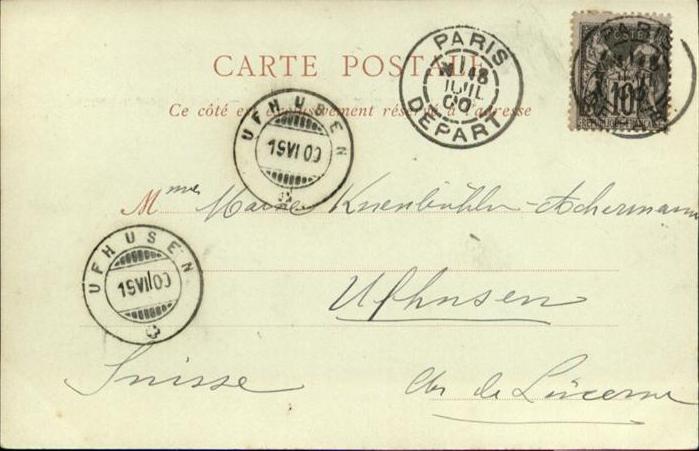 CARTE POSTALE
Ce côté est exclusivement réservé à l'adresse
PARIS
18
JUIL
00
DEPART
PARIS
POSTES
10
UFHUSEN
19 VII 00
UFHUSEN
19 VII 00
Mme Marie Knenbühler-Achermann
Ufhusen
Suisse
Ctn de Lucerne